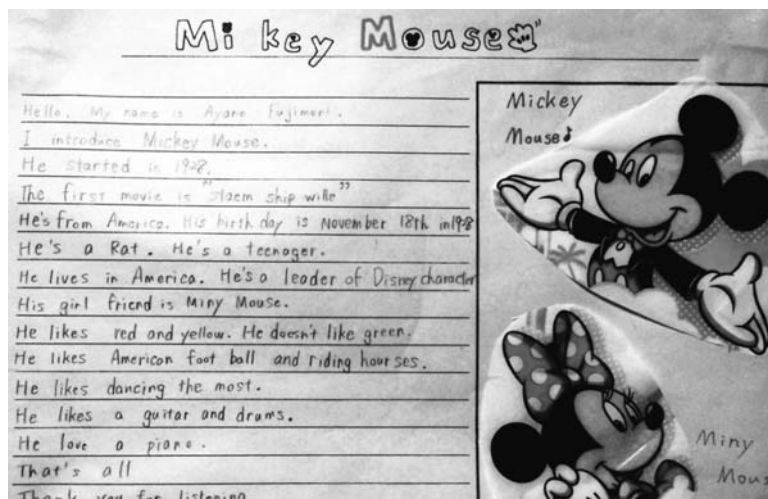 Mickey Mouse
Hello. My name is Ayano Fujimori.
I introduce Mickey Mouse.
He started in 1928.
The first movie is "Staem ship wille"
He's from America. His birthday is November 18th in 1928
He's a Rat. He's a teenager.
He lives in America. He's a leader of Disney character
His girl friend is Miny Mouse.
He likes red and yellow. He doesn't like green.
He likes American foot ball and riding hourses.
He likes dancing the most.
He likes a guitar and drums.
He love a piano.
That's all
Thank you for listening
Mickey
Mouse♪
Miny
Mous